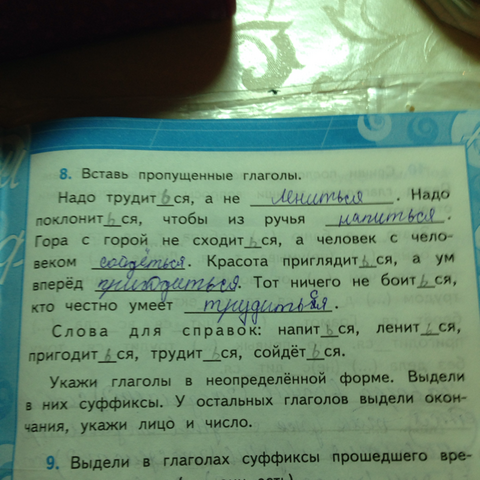 8. Вставь пропущенные глаголы.
Надо трудитьбся, а не лениться. Надо
поклониться, чтобы из ручья напиться.
Гора с горой не сходиться, а человек с чело-
веком сойдёться. Красота приглядиться, а ум
вперёд пригодиться. Тот ничего не боиться,
кто честно умеет трудиться.
Слова для справок: напиться, лениться,
пригодиться, трудиться, сойдёться.
Укажи глаголы в неопределённой форме. Выдели
в них суффиксы. У остальных глаголов выдели окон-
чания, укажи лицо и число.
9. Выдели в глаголах суффиксы прошедшего вре-